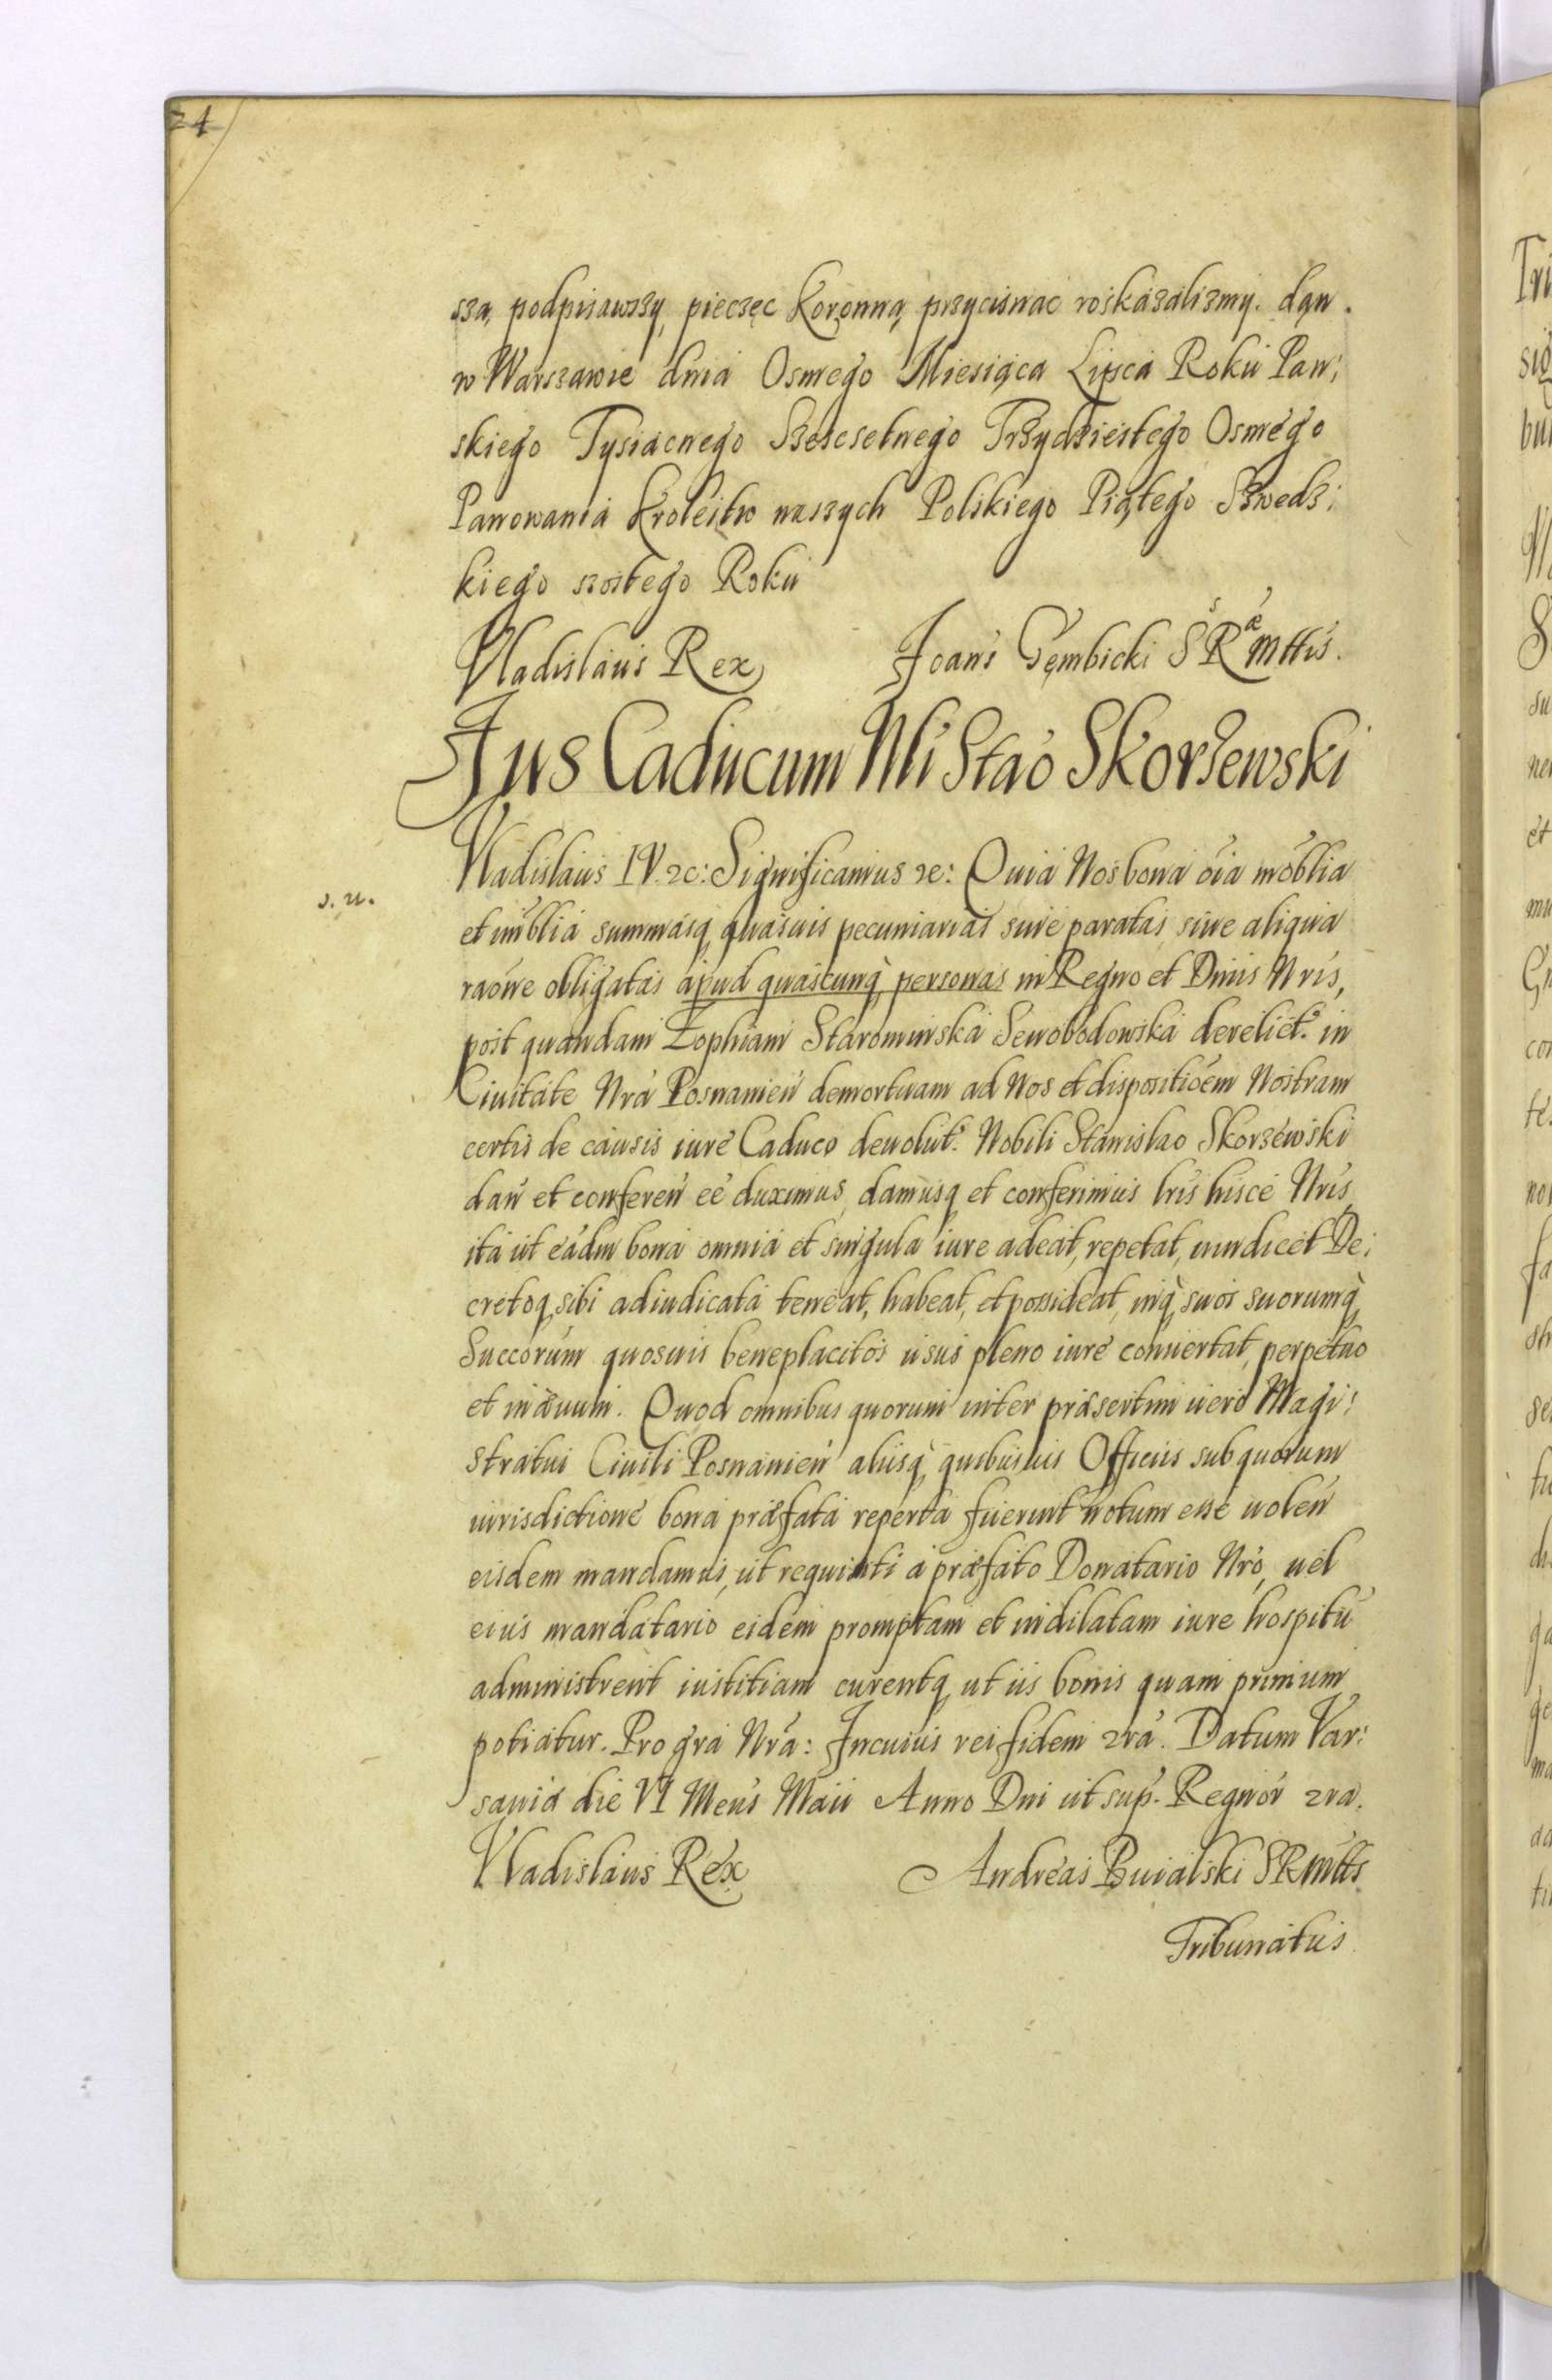 24
sza, podpisawszy, pieczęc Koronną przycisnac roskazalismy. dąn.
w Warszawie dnia Osmego Miesiąca Lipca Roku Pan;
skiego Tysiacnego Szescsetnego Trzydziestego Osmego
Panowania Krolestw naszych Polskiego Piątego Szwedz;
kiego szostego Roku
Vladislaus Rex Joans Gembicki S R æ Mttis.
Jus Caducum Nli Stao Skorzewski
Vladislaus IV. &c: Significamus &c: Quia Nos bona oia moblia
s. u.
et imblia summasq quasuis pecuniarias siue paratas siue aliqua
raone obligatas apud quascunq personas in Regno et Dniis Nris,
post quandam Zophiam Starominska Senobodowska derelict. in
Ciuitate Nra Posnanien demortuam ad Nos et dispositioem Nostram
certis de causis iure Caduco deuolut. Nobili Stanislao Skorzewski
dan et conferen ee duximus, damusq et conferimus lris hisce Nris,
ita ut eadm bona omnia et singula iure adeat, repetat, uindicet De;
cretoq sibi adiudicata teneat, habeat, et possideat, inq suos suorumq
Succorum quosuis beneplacitos usus pleno iure conuertat, perpetuo
et in æuum. Quod omnibus quorum inter præsertim uero Magi;
stratui Ciuili Posnanien aliisq quibusuis Officiis sub quorum
iurisdictione bona præfata reperta fuerint notum esse uolen
eisdem mandamus, ut requisiti a præfato Donatario Nro, uel
eius mandatario eidem promptam et indilatam iure hospitu
administrent iustitiam curentq ut iis bonis quam primum
potiatur. Pro gra Nra: In cuius rei fidem &ra. Datum Var;
sauiæ die VI Mens Maii Anno Dni ut sup. Regnor &ra.
Vladislaus Rex Andreas Buialski SRMttis
Tribunatus